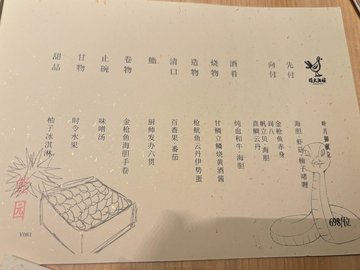 先付
海胆 柚子啫喱
向付
金枪鱼赤身
帆立贝 海胆
真鲷云丹
酒肴
纯血和牛 海胆
烧物
甘鲷立鳞烧黄酒酱
造物
枪鱿鱼云丹伊势蛋
清口
百香果 番茄
鮨
厨师发办六贯
卷物
金枪鱼海胆手卷
止碗
味噌汤
甘物
时令水果
甜品
柚子冰淇淋
园
V081
698/位